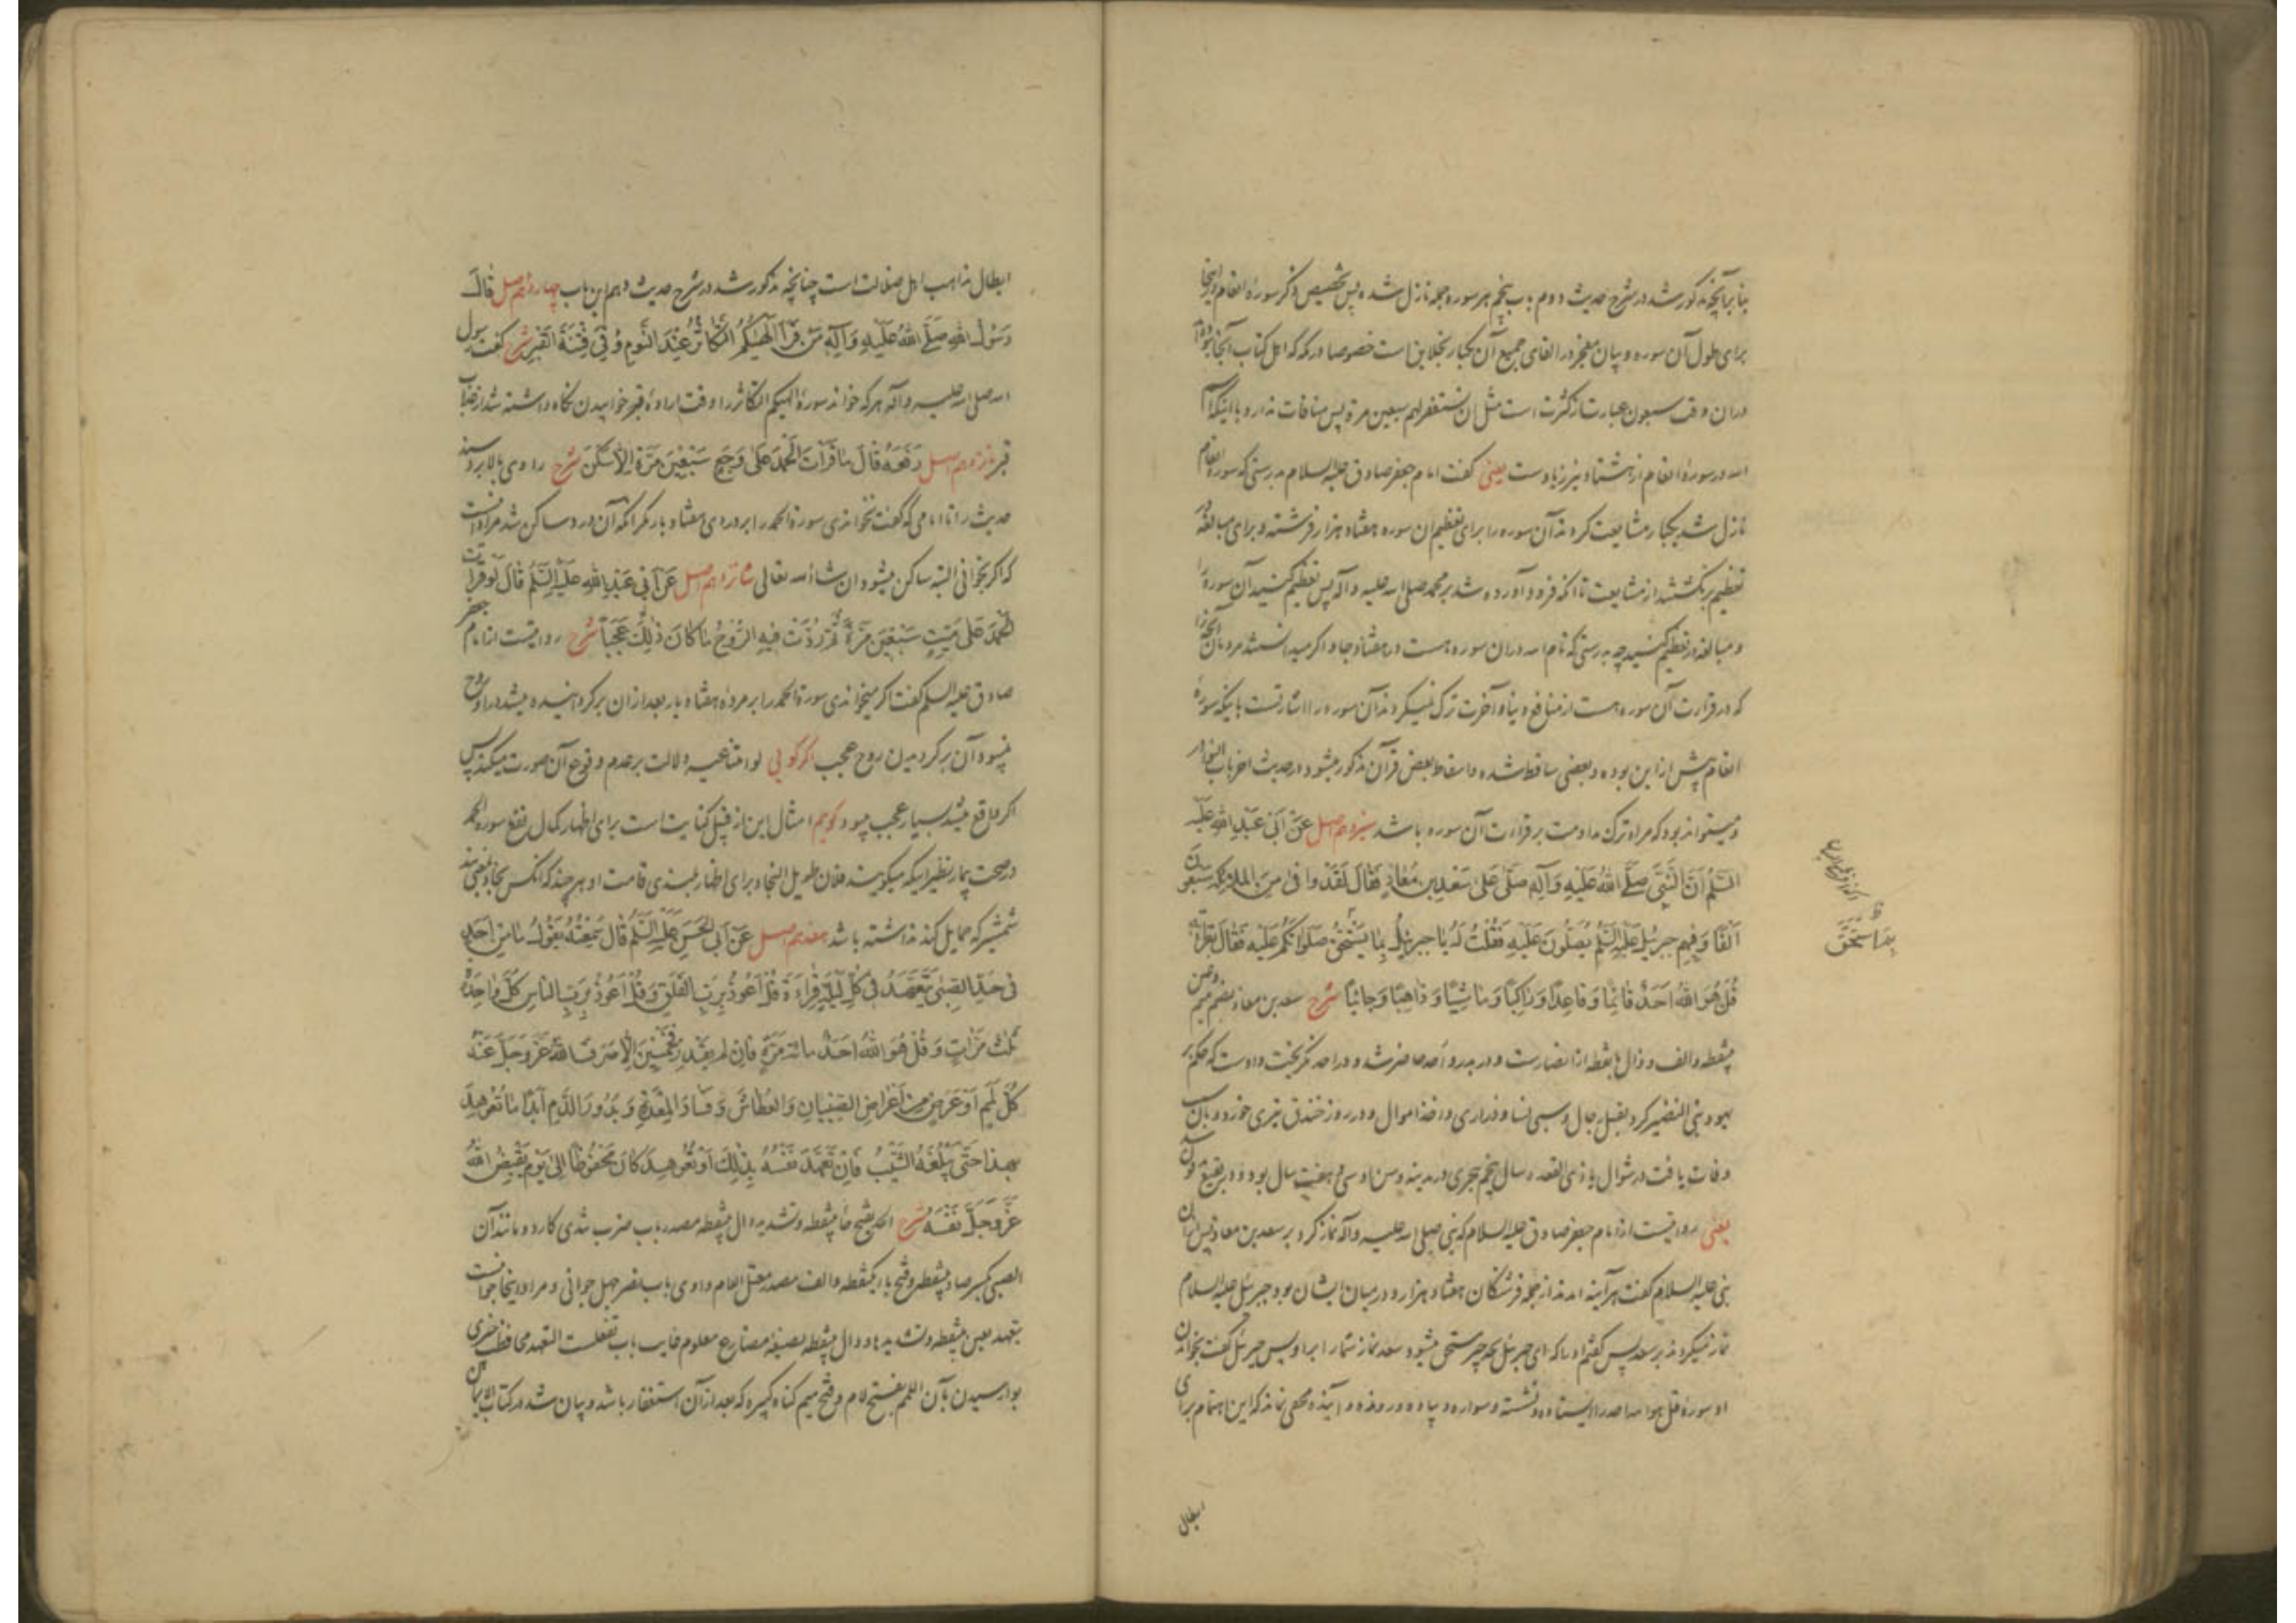 بنا برآنچه مذکور شد در شرح حدیث دوم باب پنجم هر سوره جمعه نازل شده پس تخصیص ذکر سورهٔ انعام در اینجا
برای طول آن سوره و بیان معجز در القای جمیع آن یکبار بخلاین است خصوصا در مکه که اهل کتاب آنجا نبوده
دران وقت سبعون عبارت از کثرت است مثل ان تستغفر لهم سبعین مرة پس منافات ندارد با اینکه اسم
الله در سورهٔ انعام از هشتاد نیز زیاد است یعنی گفت امام جعفر صادق علیه السلام بدرستی که سورهٔ انعام
نازل شد یکبار مشایعت کردند آن سوره را برای تعظیم ان سوره هفتاد هزار فرشته و برای مبالغهٔ در
تعظیم برنگشتند از مشایعت تا آنکه فرود آورده شد بر محمد صلی الله علیه و آله پس تعظیم کنید آن سوره را
و مبالغه در تعظیم کنید چه بدرستی که نام الله دران سوره هست در هفتاد جا و اگر میدانستند مردمان آنچه را
که در قرارت آن سوره هست از منافع دنیا و آخرت ترک نمیکردند آن سوره را اشارتست باینکه سورهٔ
انعام پیش ازاین بوده و بعضی ساقط شده و اسقاط بعض قرآن مذکور میشود در حدیث اخر باب النوادر
و میتواند بود که مراد ترک مداومت بر قراءت آن سوره باشد سیزدهم اصل عَنْ اَبِی عَبْدِ اللهِ عَلَیْهِ
السَّلَمُ اَنَّ النَّبِیَّ صَلَّی اللهُ عَلَیْهِ وَآلِهِ صَلَّی عَلی سَعْدِ بْنِ مُعَاذٍ فَقَالَ لَقَدْ وافی مِنَ المَلائِکَةِ سَبْعُونَ
اَلْفًا وَفِیهِمْ جِبْرَئِیلُ عَلَیْهِ السَّلَمُ یُصَلُّونَ عَلَیْهِ فَقُلْتُ لَهُ یَا جِبْرَئِیلُ بِمَا یَسْتَحِقُّ صَلَوتَکُمْ عَلَیْهِ فَقَالَ بِقِرَاءَتِهِ
قُلْ هُوَ اللهُ اَحَدٌ قَائِمًا وَقَاعِدًا وَرَاکِبًا وَمَاشِیًا وَذَاهِبًا وَجَائِیًا شرح سعد بن معاذ بضم میم و عین
بینقطه و الف و ذال بانقطه از انصارست و در بدر و اُحد حاضر شد و در احد نگریخت و اوست که حکم بر
یهود بنی النضیر کرد بقتل رجال و سبی نسا و ذراری و اخذ اموال و در روز خندق تیری خورد و بآن سبب
وفات یافت در شوال یا ذی القعده سال پنجم هجری در مدینه و سن او سی و هفت سال بود و در بقیع مدفون شد
یعنی روایتست از امام جعفر صادق علیه السلام که نبی صلی الله علیه و آله نماز کرد بر سعد بن معاذ پس
نبی علیه السلام گفت هرآینه آمدند از جمله فرشتگان هفتاد هزار و در میان ایشان بود جبرئیل علیه السلام
نماز میکردند بر سعد پس گفتم اورا که ای جبرئیل بچه چیز مستحق میشود سعد نماز شمارا براو پس جبرئیل گفت بخواندن
او سورهٔ قل هو الله احد را ایستاده و نشسته و سواره و پیاده و رونده و آینده مخفی نماند که این اهتمام برای
ابطال
بِمَا اسْتَحَقَّ
ابطال مذاهب اهل ضلالت است چنانچه مذکور شد در شرح حدیث دهم این باب چهاردهم اصل قَالَ
رَسُولُ اللهِ صَلَّی اللهُ عَلَیْهِ وَآلِهِ مَنْ قَرَأَ اَلْهیکُمُ التَّکَاثُرُ عِنْدَ النَّوْمِ وُقِیَ فِتْنَةَ القَبْرِ شرح گفت رسول
الله صلی الله علیه و آله هر که خواند سورهٔ الهیکم التکاثر را وقت ارادهٔ خوابیدن نگاه داشته شد از عذاب
قبر پانزدهم اصل رَفَعَهُ قَالَ مَا قَرَأْتَ الْحَمْدَ عَلی وَجَعٍ سَبْعِینَ مَرَّةً اِلَّا سَکَنَ شرح راوی بالا برد سند
حدیث را تا امامی که گفت نخواندی سورهٔ الحمد را بردردی هفتاد بار مگر آنکه آن درد ساکن شد مراد آنست
که اگر بخوانی البته ساکن میشود ان شاء الله تعالی شانزدهم اصل عَنْ اَبِی عَبْدِ اللهِ عَلَیْهِ السَّلَمُ قَالَ لَوْ قَرَأْتَ
الْحَمْدَ عَلی مَیِّتٍ سَبْعِینَ مَرَّةً ثُمَّ رُدَّتْ فِیهِ الرُّوحُ مَا کَانَ ذلِکَ عَجَبًا شرح روایتست از امام جعفر
صادق علیه السلم گفت اگر میخواندی سورهٔ الحمد را بر مرده هفتاد بار بعد ازان برگردانیده میشد دراو روح
نمیبود آن برگردیدن روح عجب اگر گویی لو امتناعیه دلالت بر عدم وقوع آن صورت میکند پس
اگر واقع میشد بسیار عجب میبود گویم امثال این از قبیل کنایت است برای اظهار کمال نفع سوره الحمد
در صحت بیمار نظیر اینکه میگویند فلان طویل النجاد برای اظهار بلندی قامت او هرچند که آنکس نجاد یعنی بند
شمشیر که حمایل کند نداشته باشد هفدهم اصل عَنْ اَبِی الْحَسَنِ عَلَیْهِ السَّلَمُ قَالَ سَمِعْتُهُ یَقُولُ مَا مِنْ اَحَدٍ
فِی حَدِّ الصِّبی یَتَعَهَّدُ فِی کُلِّ لَیْلَةٍ قِرَاءَةَ قُلْ اَعُوذُ بِرَبِّ الفَلَقِ وَقُلْ اَعُوذُ بِرَبِّ النَّاسِ کُلَّ وَاحِدَةٍ
ثَلثَ مَرَّاتٍ وَقُلْ هُوَ اللهُ اَحَدٌ مِائَةَ مَرَّةٍ فَاِنْ لَمْ یَقْدِرْ فَخَمْسِینَ اِلَّا صَرَفَ اللهُ عَزَّوَجَلَّ عَنْهُ
کُلَّ لَمَمٍ اَوْ عَرَضٍ مِنْ اَعْرَاضِ الصِّبْیَانِ وَالعُطَاشَ وَفَسَادَ المِعْدَةِ وَبُدُورَ الدَّمِ اَبَدًا مَا تُعُوهِدَ
بِهذَا حَتّی یَبْلُغَهُ الشَّیْبُ فَاِنْ تَعَهَّدَ نَفْسَهُ بِذلِکَ اَوْ تُعُوهِدَ کَانَ مَحْفُوظًا اِلی یَوْمِ یَقْبِضُ اللهُ
عَزَّوَجَلَّ نَفْسَهُ شرح الحد بفتح حاء بینقطه و تشدید دال بینقطه مصدر باب ضرب تندی کارد و مانند آن
الصبی بکسر صاد بینقطه و فتح باء یکنقطه و الف مصدر معتل اللام واوی باب نصر جهل جوانی و مراد اینجا جوانیست
یتعهد بعین بینقطه و تشدید هاء و دال بینقطه بصیغه مضارع معلوم غایب باب تفعلست التعهد محافظت چیزی
بوارسیدن بآن اللمم بفتح لام و فتح میم گناه کبیره که بعد ازآن استغفار باشد و بیان شد در کتاب الایمان